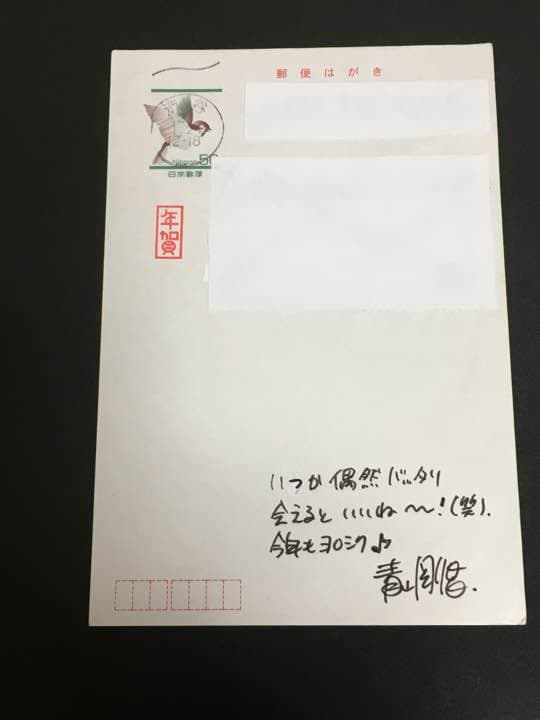 郵便はがき
12.18
NIPPON 50
日本郵便
年賀
いつか偶然バッタリ
会えるといいね〜〜!(笑).
今年もヨロシク♪
青山剛昌.